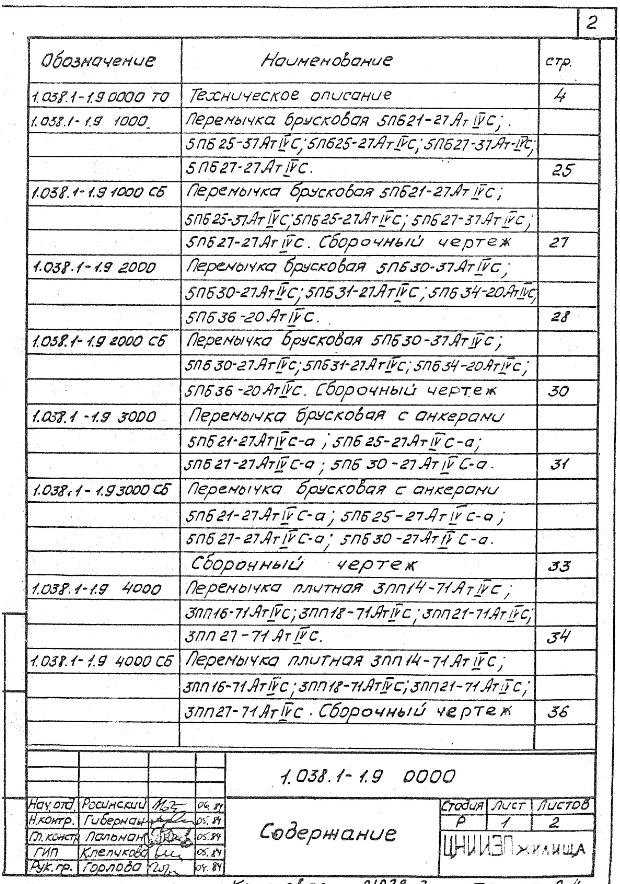 2
Обозначение Наименование стр.
1.038.1-1.9 0000 ТО Техническое описание 4
1.038.1-1.9 1000 Перемычка брусковая 5ПБ21-27АтIVС;
5ПБ25-37АтIVС; 5ПБ25-27АтIVС; 5ПБ27-37Ат-IVС;
5ПБ27-27АтIVС. 25
1.038.1-1.9 1000 СБ Перемычка брусковая 5ПБ21-27АтIVС;
5ПБ25-37АтIVС; 5ПБ25-27АтIVС; 5ПБ27-37АтIVС;
5ПБ27-27АтIVС. Сборочный чертеж 27
1.038.1-1.9 2000 Перемычка брусковая 5ПБ30-37АтIVС;
5ПБ30-27АтIVС; 5ПБ31-27АтIVС; 5ПБ34-20АтIVС;
5ПБ36-20АтIVС. 28
1.038.1-1.9 2000 СБ Перемычка брусковая 5ПБ30-37АтIVС;
5ПБ30-27АтIVС; 5ПБ31-27АтIVС; 5ПБ34-20АтIVС;
5ПБ36-20АтIVС. Сборочный чертеж 30
1.038.1-1.9 3000 Перемычка брусковая с анкерами
5ПБ21-27АтIVС-а; 5ПБ25-27АтIVС-а;
5ПБ27-27АтIVС-а; 5ПБ30-27АтIVС-а. 31
1.038.1-1.9 3000 СБ Перемычка брусковая с анкерами
5ПБ21-27АтIVС-а; 5ПБ25-27АтIVС-а;
5ПБ27-27АтIVС-а; 5ПБ30-27АтIVС-а.
Сборочный чертеж 33
1.038.1-1.9 4000 Перемычка плитная 3ПП14-71АтIVС;
3ПП16-71АтIVС; 3ПП18-71АтIVС; 3ПП21-71АтIVС;
3ПП27-71АтIVС. 34
1.038.1-1.9 4000 СБ Перемычка плитная 3ПП14-71АтIVС;
3ПП16-71АтIVС; 3ПП18-71АтIVС; 3ПП21-71АтIVС;
3ПП27-71АтIVС. Сборочный чертеж 36
1.038.1-1.9 0000
Нач.отд. Росинский 04.84
Н.контр. Губерман 05.84
Гл.констр Пальман 05.84
ГИП Клепикова 05.84
Рук.гр. Горлова 04.84
Содержание
Стадия Лист Листов
Р 1 2
ЦНИИЭП жилища